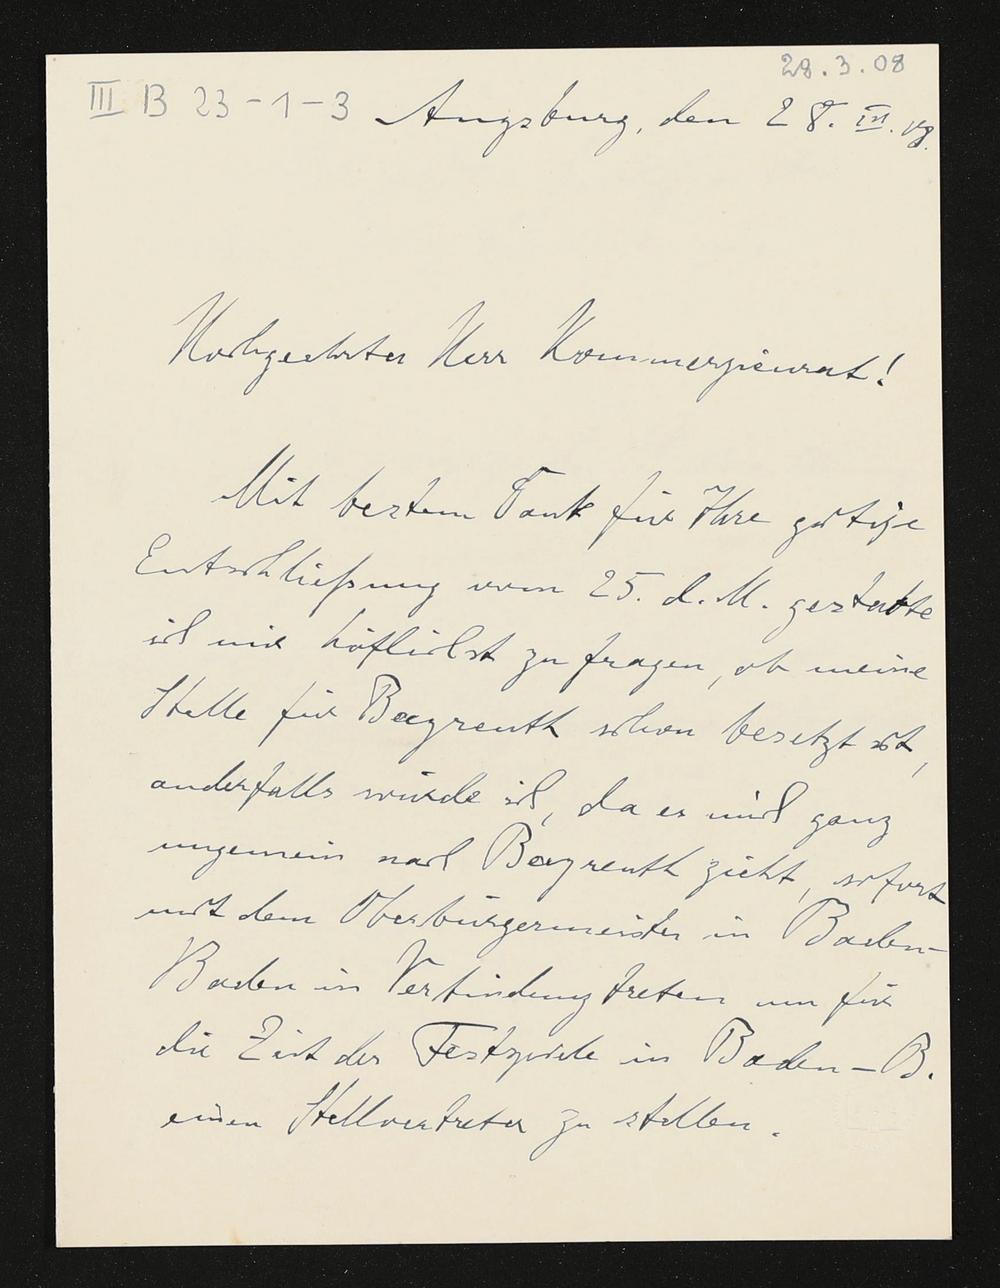 28.3.08
III B 23-1-3
Augsburg, den 28. III. 08.
Hochgeehrter Herr Kommerzienrat!
Mit bestem Dank für Ihre gütige
Entschließung vom 25. d. M. gestatte
ich mir höflichst zu fragen, ob meine
Stelle für Bayreuth schon besetzt ist,
anderfalls würde ich, da es mich ganz
ungemein nach Bayreuth zieht, sofort
mit dem Oberbürgermeister in Baden-
Baden in Verbindung treten um für
die Zeit der Festspiele in Baden-B.
einen Stellvertreter zu stellen.